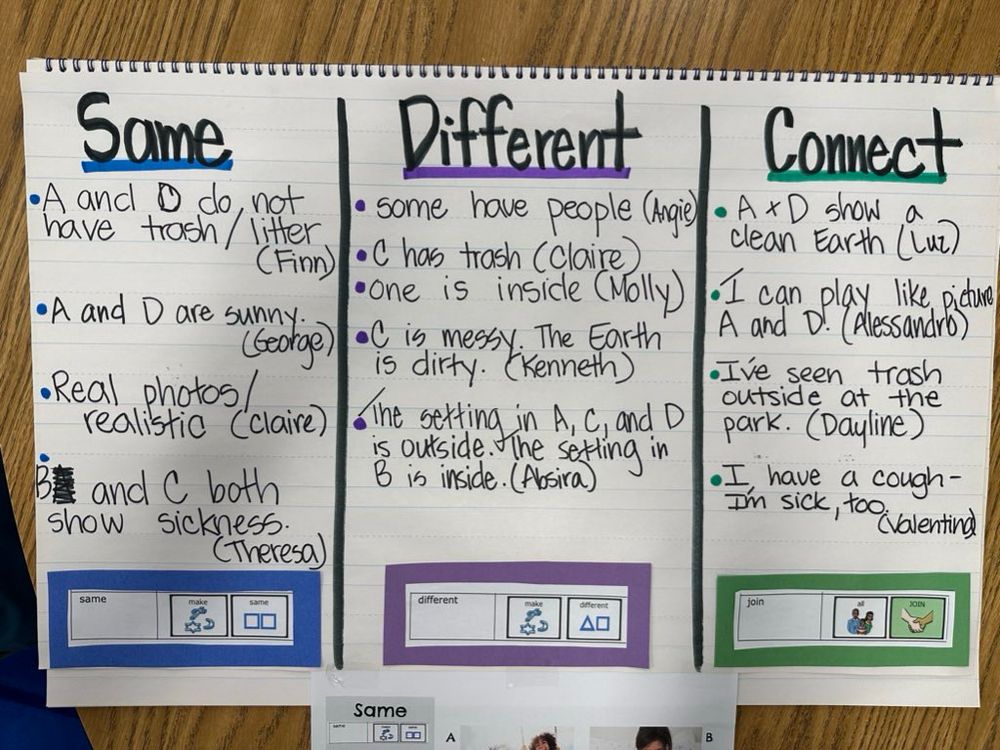 Same
• A and D do not
have trash/litter
(Finn)
• A and D are sunny.
(George)
• Real photos/
realistic (Claire)
• B and C both
show sickness.
(Theresa)
same
make
same
Different
• some have people (Angie)
• C has trash (Claire)
• one is inside (Molly)
• C is messy. The Earth
is dirty. (Kenneth)
• The setting in A, C, and D
is outside. The setting in
B is inside. (Absira)
different
make
different
Connect
• A + D show a
clean Earth (Lui)
• I can play like picture
A and D. (Alessandro)
• I've seen trash
outside at the
park. (Dayline)
• I have a cough-
I'm sick, too.
(Valentina)
join
all
JOIN
Same
same
make
same
A
B